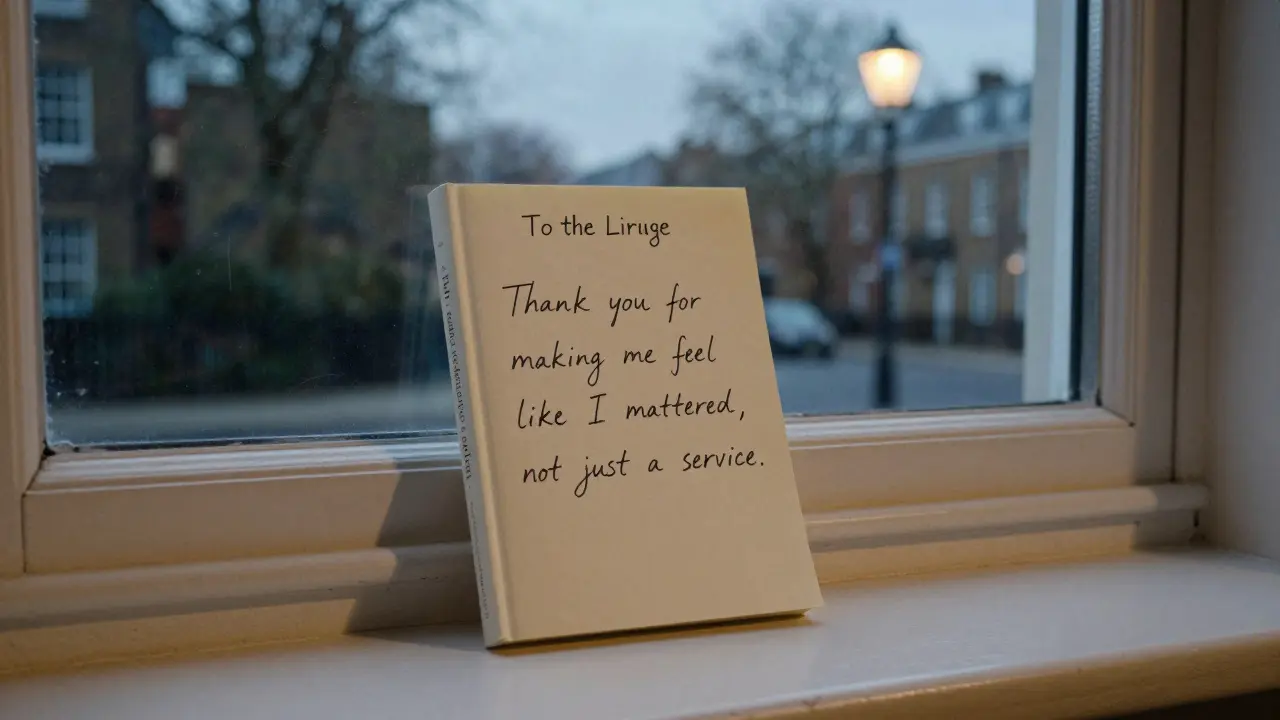 To the Liruge
Thank you for
making me feel
like I mattered,
not just a service.